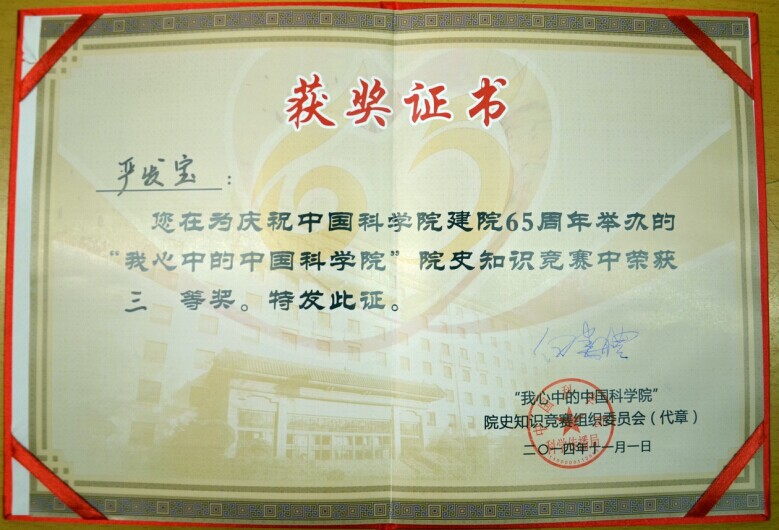 获奖证书
严发宝：
您在为庆祝中国科学院建院65周年举办的
“我心中的中国科学院”院史知识竞赛中荣获
三 等奖。特发此证。
“我心中的中国科学院”
院史知识竞赛组织委员会（代章）
二〇一四年十一月一日
中国科学院
科学传播局